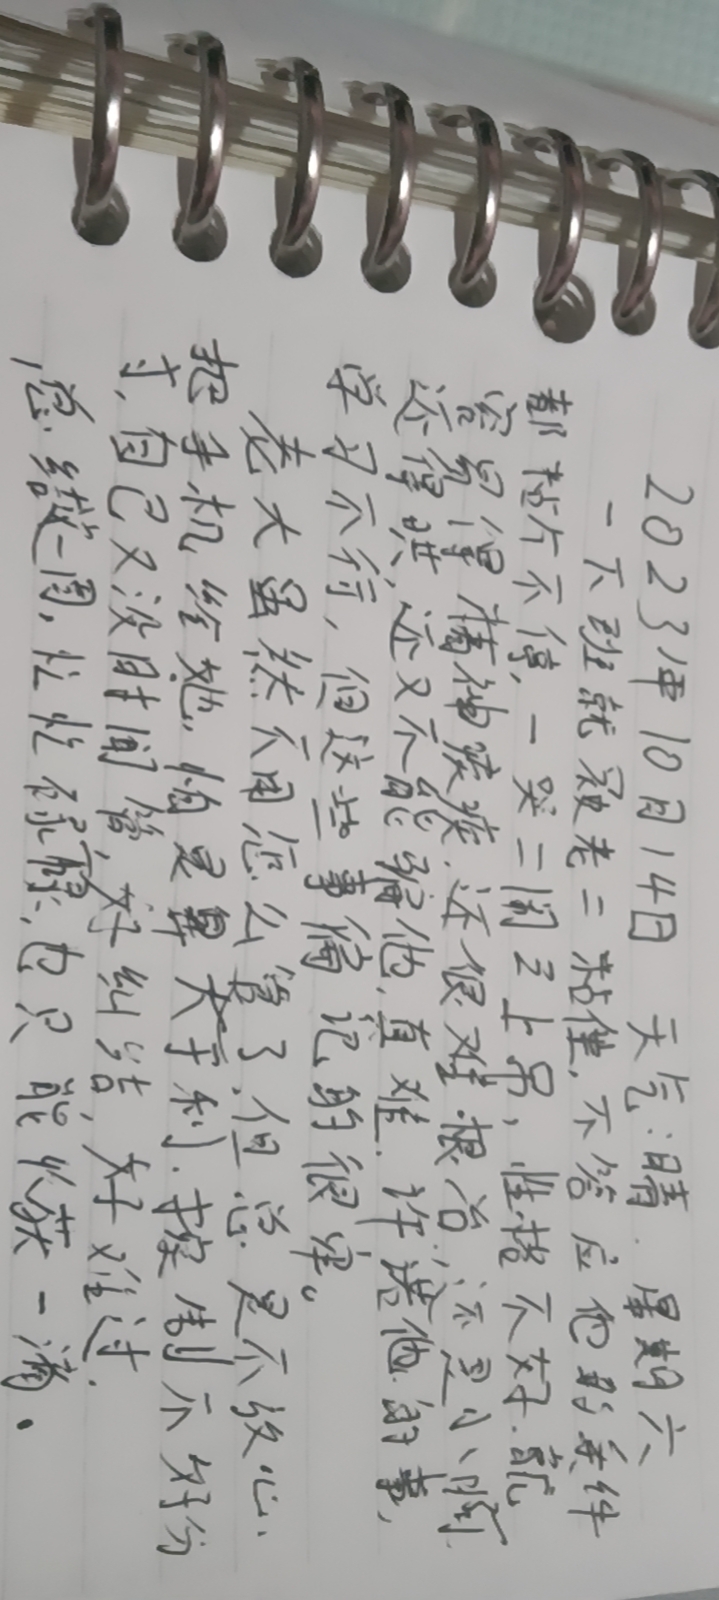 2023年10月14日 天气:晴. 星期六
一下班就被老二粘住,不答应他的条件
都粘个不停,一哭二闹三上吊,性格不好.就
容易得精神疾病.还很难根治,还是小啊
还得哄,还又不能骗他,真难.许诺他的事,
学习不行,但这些事情记的很牢。
老大虽然不用怎么管了,但总是不放心.
把手机给她,怕是弊大于利.控制不好分
寸,自己又没时间管,好纠结,好难过.
总结一周,忙忙碌碌,也只能收获一滴.